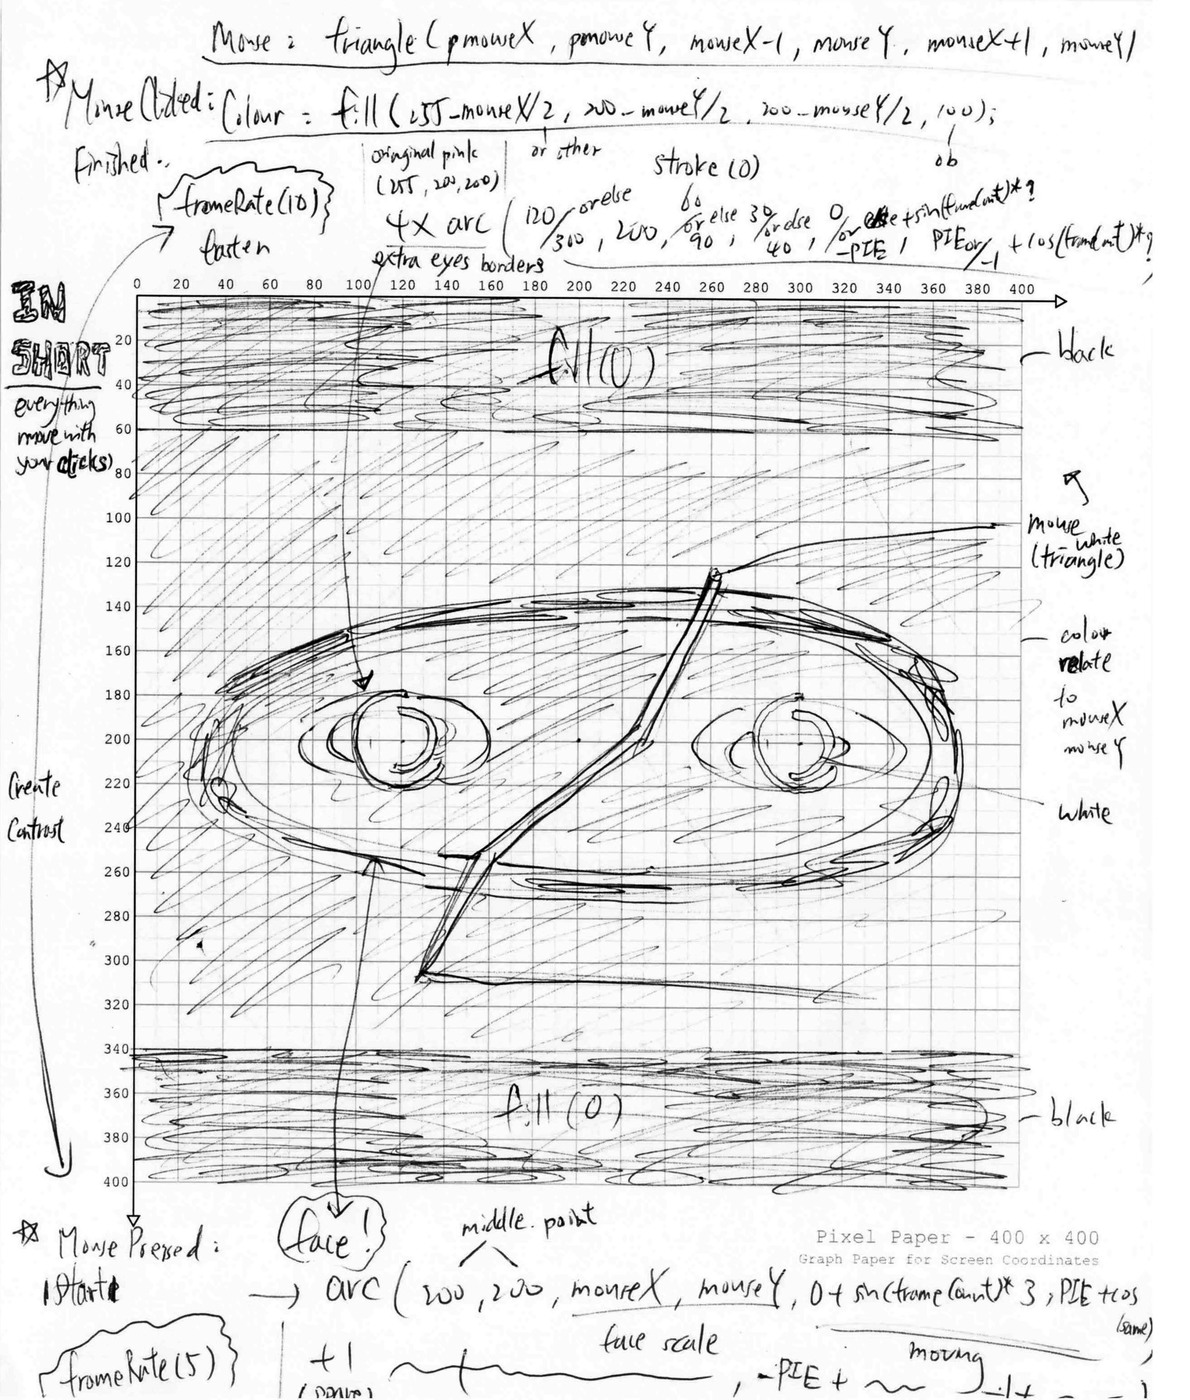 Mouse : triangle ( pmouseX , pmouseY, mouseX-1, mouseY, mouseX+1, mouseY)
☆ Mouse Clicked : Colour = fill (255-mouseX/2, 200-mouseY/2, 200-mouseY/2, 100);
Finished..
original pink
(255, 200, 200)
or other
stroke (0)
frameRate(10)
fasten
4x arc ( 120/300 or else, 200, 60/90 or else, 30/40 or else, 0/-PIE +sin(frameCount)*?, PIE or/-1 +cos(frameCount)*?
extra eyes borders
IN
SHORT
everything
move with
your clicks)
0 20 40 60 80 100 120 140 160 180 200 220 240 260 280 300 320 340 360 380 400
20
40
60
80
100
120
140
160
180
200
220
240
260
280
300
320
340
360
380
400
fill(0)
black
mouse
white
(triangle)
colour
relate
to
mouseX
mouseY
white
Create
Contrast
fill (0)
black
face!
middle point
Pixel Paper - 400 x 400
Graph Paper for Screen Coordinates
☆ Mouse Pressed :
start
→ arc ( 200, 200, mouseX, mouseY, 0+ sin(frameCount)* 3, PIE +cos
(same)
face scale
moving
frameRate(5)
+1
, -PIE +